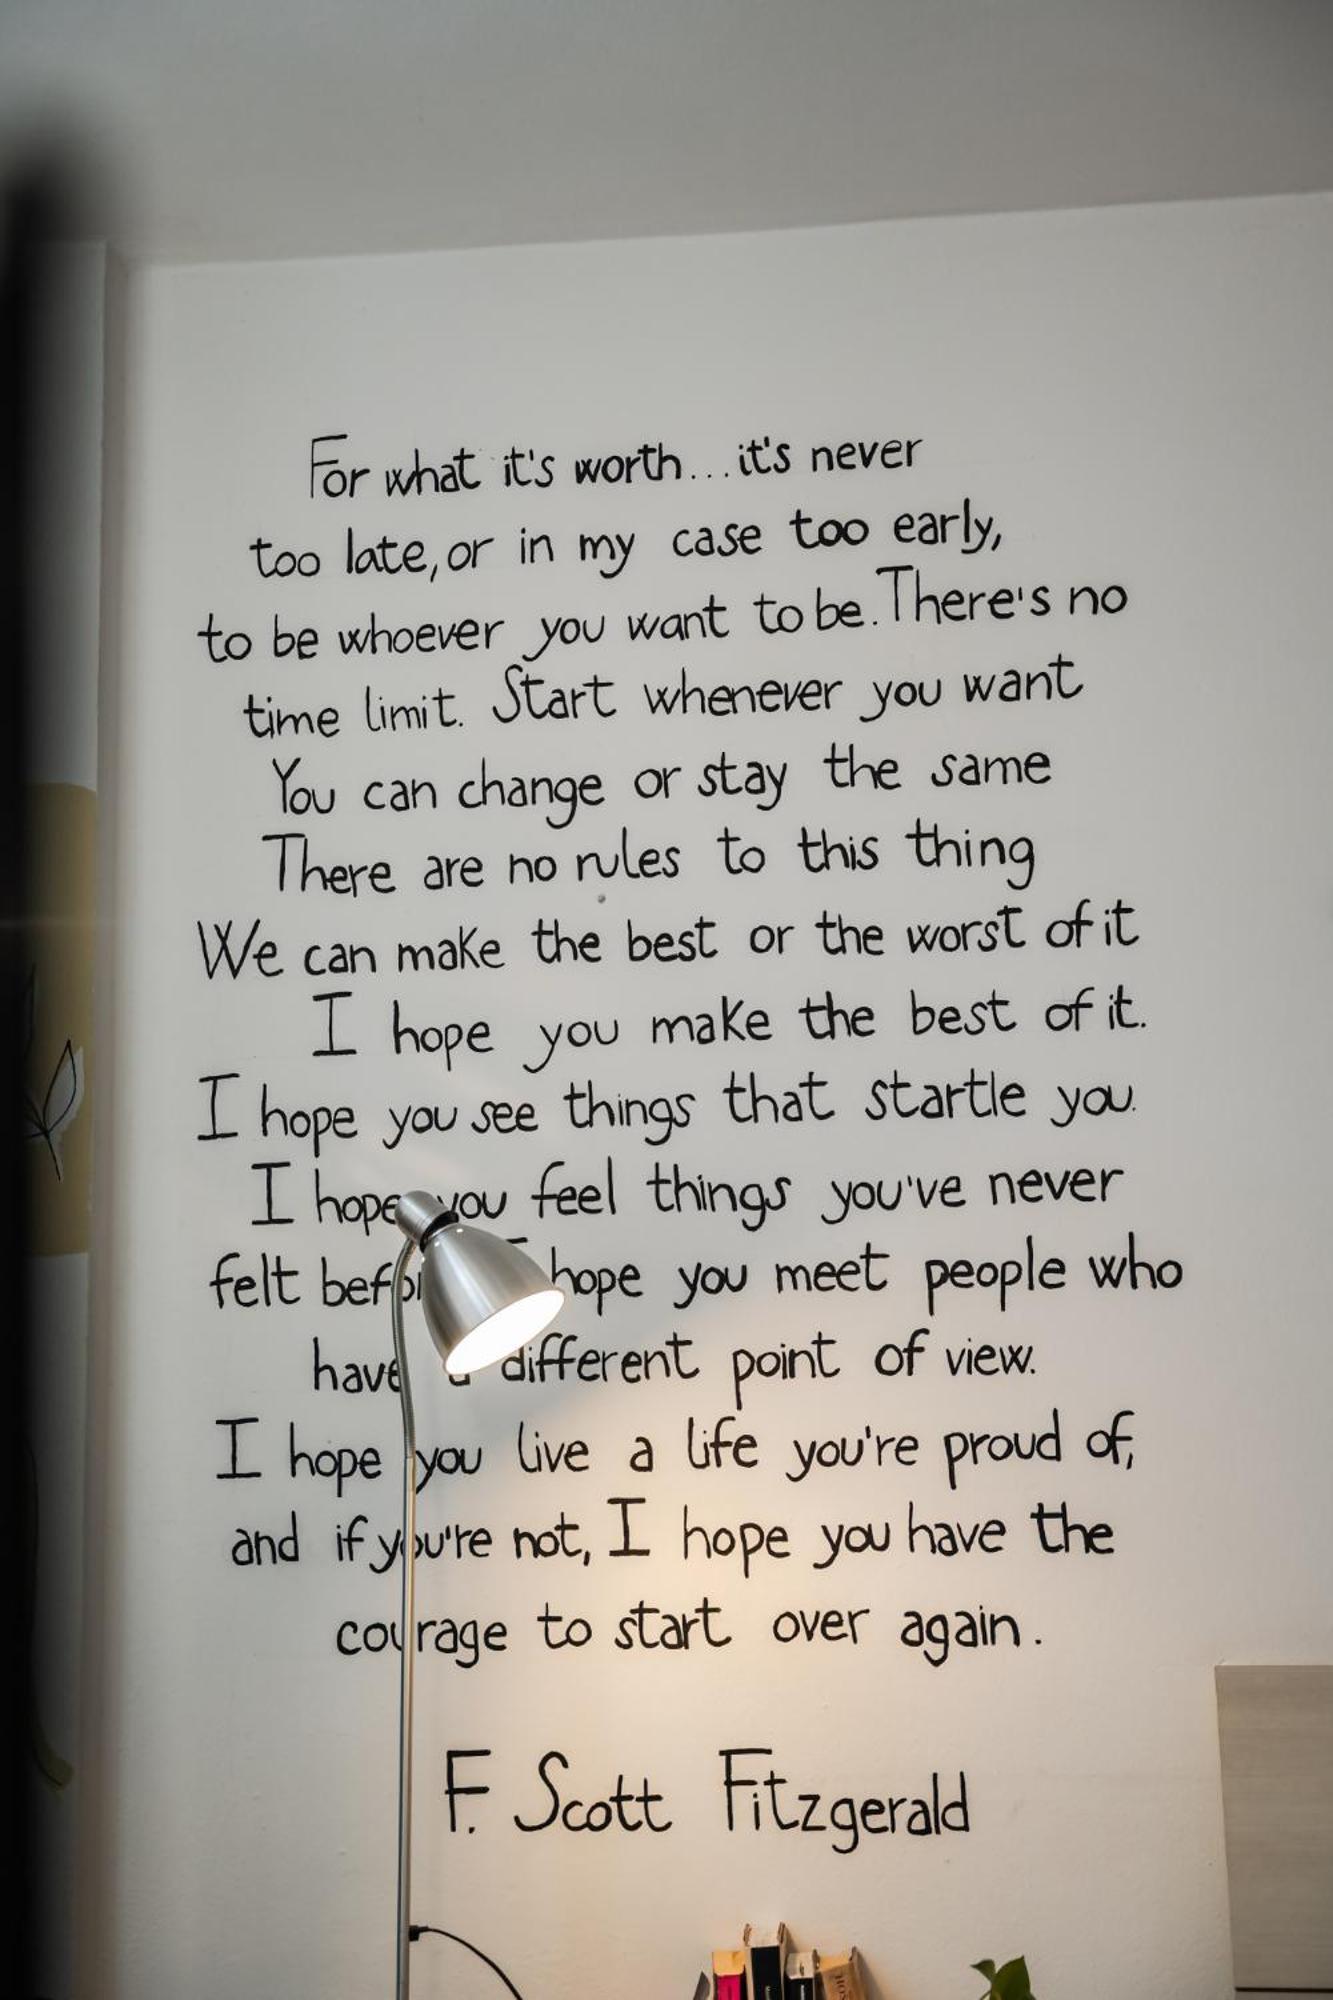 For what it's worth...it's never
too late, or in my case too early,
to be whoever you want to be. There's no
time limit. Start whenever you want
You can change or stay the same
There are no rules to this thing
We can make the best or the worst of it
I hope you make the best of it.
I hope you see things that startle you.
I hope you feel things you've never
felt befor I hope you meet people who
have a different point of view.
I hope you live a life you're proud of,
and if you're not, I hope you have the
courage to start over again.
F. Scott Fitzgerald